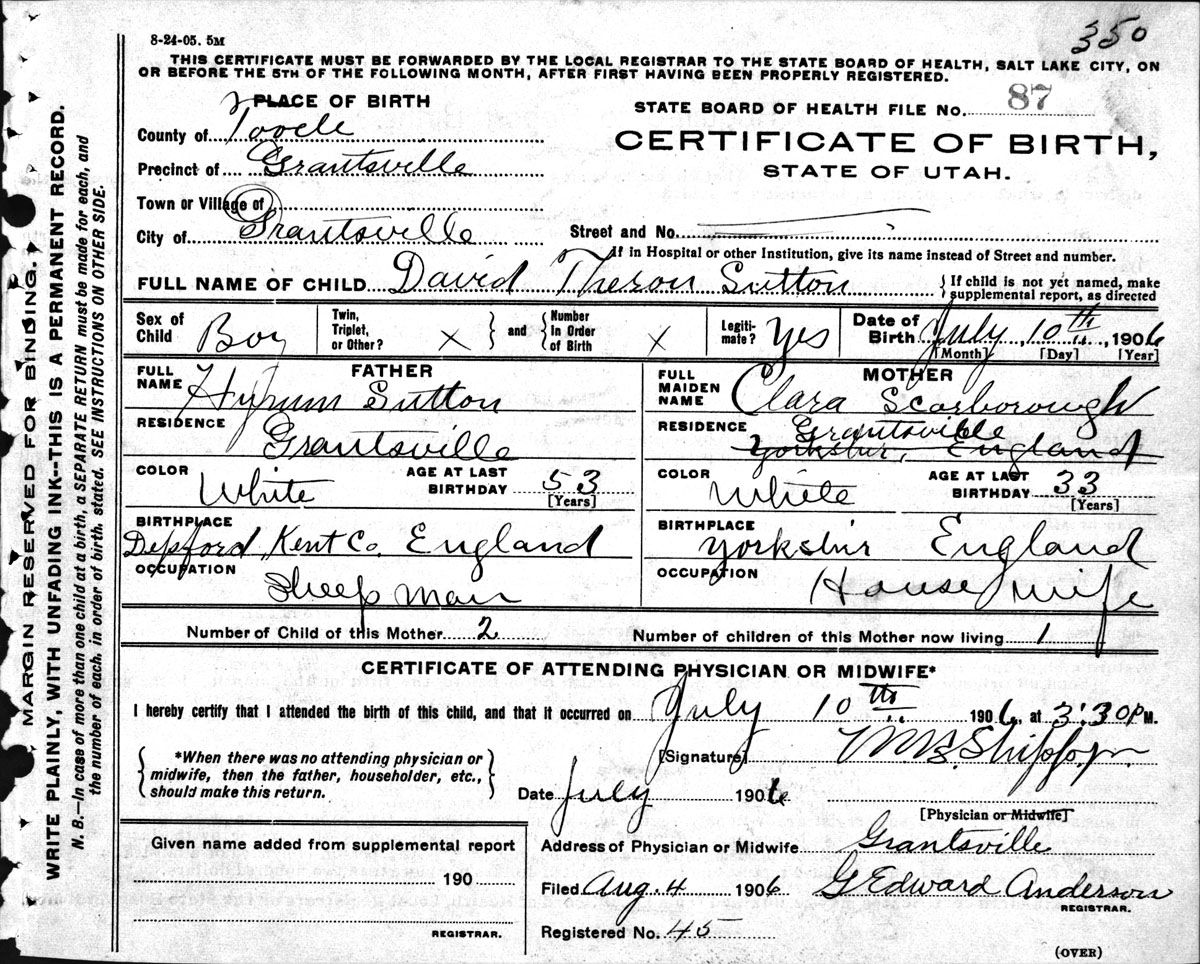 350
8-24-05. 5M
THIS CERTIFICATE MUST BE FORWARDED BY THE LOCAL REGISTRAR TO THE STATE BOARD OF HEALTH, SALT LAKE CITY, ON
OR BEFORE THE 5TH OF THE FOLLOWING MONTH, AFTER FIRST HAVING BEEN PROPERLY REGISTERED.
PLACE OF BIRTH
STATE BOARD OF HEALTH FILE No. 87
County of Tooele
CERTIFICATE OF BIRTH,
Precinct of Grantsville
STATE OF UTAH.
Town or Village of
City of Grantsville
Street and No.
If in Hospital or other Institution, give its name instead of Street and number.
FULL NAME OF CHILD David Theron Sutton { If child is not yet named, make
supplemental report, as directed
Sex of Child Boy
Twin, Triplet, or Other? X } and { Number In Order of Birth X
Legiti- mate? Yes
Date of Birth July 10th, 1906
[Month] [Day] [Year]
FATHER
FULL NAME Hyrum Sutton
RESIDENCE Grantsville
COLOR White AGE AT LAST BIRTHDAY 53 [Years]
BIRTHPLACE Depford, Kent Co. England
OCCUPATION Sheep man
MOTHER
FULL MAIDEN NAME Clara Scarborough
RESIDENCE Grantsville
Yorkshir, England
COLOR White AGE AT LAST BIRTHDAY 33 [Years]
BIRTHPLACE Yorkshir England
OCCUPATION House wife
Number of Child of this Mother 2 Number of children of this Mother now living 1
CERTIFICATE OF ATTENDING PHYSICIAN OR MIDWIFE*
I hereby certify that I attended the birth of this child, and that it occurred on July 10th 1906, at 3:30 P M.
*When there was no attending physician or
midwife, then the father, householder, etc.,
should make this return.
[Signature]
Date July 1906
[Physician or Midwife]
Given name added from supplemental report
190
REGISTRAR.
Address of Physician or Midwife Grantsville
Filed Aug. 4 1906 G Edward Anderson
REGISTRAR.
Registered No. 45
(OVER)
MARGIN RESERVED FOR BINDING.
WRITE PLAINLY, WITH UNFADING INK--THIS IS A PERMANENT RECORD.
N. B.—In case of more than one child at birth, a SEPARATE RETURN must be made for each, and
the number of each, in order of birth, stated. SEE INSTRUCTIONS ON OTHER SIDE.